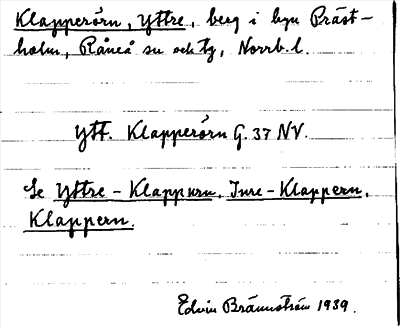 Klapperörn, Yttre, berg i byn Präst-
holm, Råneå sn och tg, Norrb. l.
Ytt. Klapperörn G. 37 NV.
Se Yttre-Klappurn, Inre-Klappern,
Klappern.
Edvin Brännström 1939.